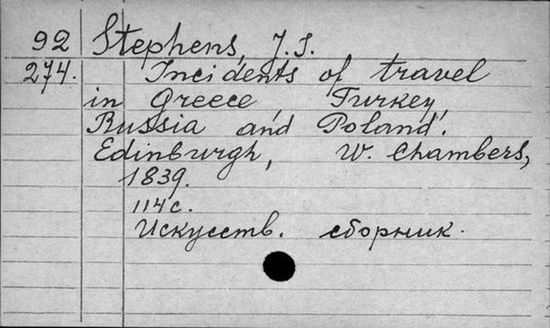 92 Stephens, J.S.
274. Incidents of travel
in Greece Turkey,
Russia and Poland.
Edinburgh, W. Chambers,
1839.
114 с.
Искусств. сборник.